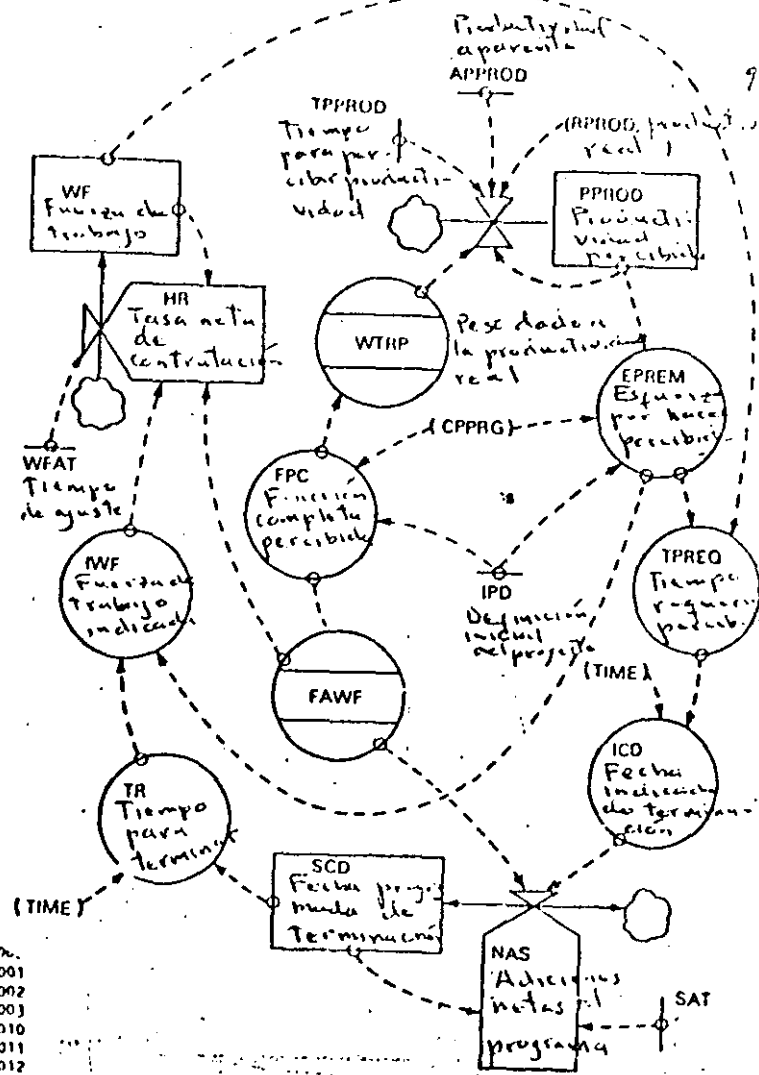 Productividad
aparente
APPROD
TPPROD
Tiempo
para per-
cibir producti-
vidad
(RPROD, product
real)
WF
Fuerza de
trabajo
PPROD
Producti-
vidad
percibida
HR
Tasa neta
de
contratación
WTRP
Peso dado a
la productividad
real
EPREM
Esfuerzo
por hacer
percibid
(CPPRG)
WFAT
Tiempo
de ajuste
FPC
Función
completa
percibida
IWF
Fuerza de
trabajo
indicada
IPD
Definición
inicial
del proyecto
TPREQ
Tiempo
requeri
percib.
FAWF
(TIME)
ICD
Fecha
indicada
de termina-
ción
TR
Tiempo
para
terminar
SCD
Fecha progra
mada de
Terminación
(TIME)
NAS
Adiciones
netas al
programa
SAT
001
002
003
010
011
012